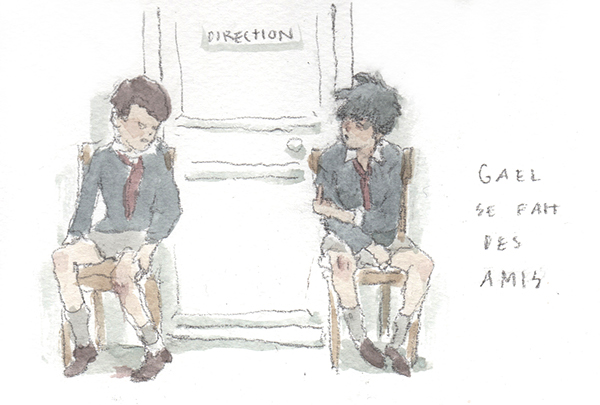 DIRECTION
GAEL
SE FAIT
DES
AMIS